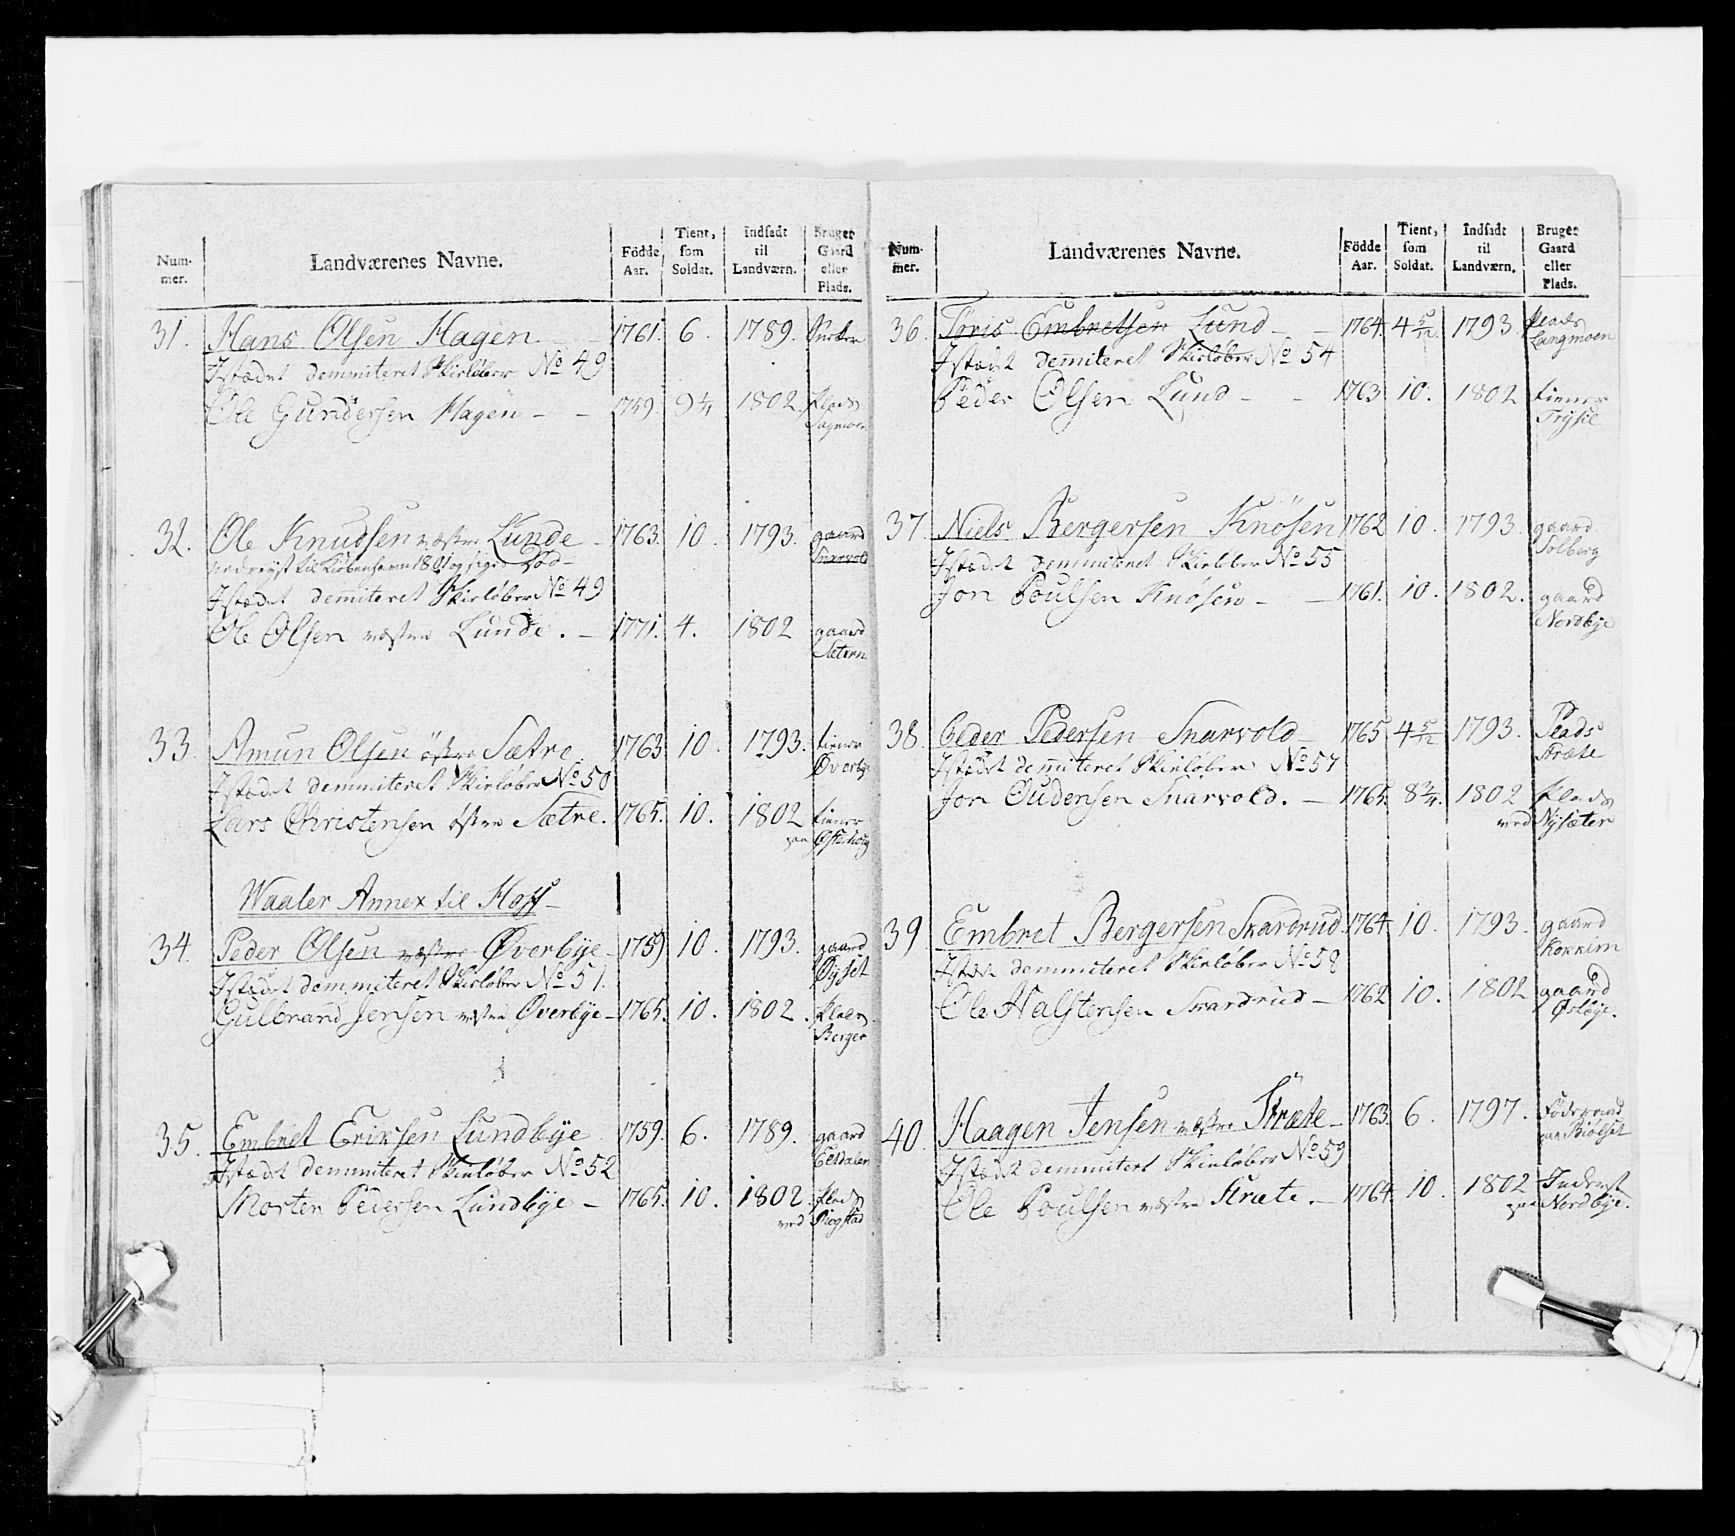 Num-
mer.
Landværenes Navne.
Födde
Aar.
Tient,
som
Soldat.
Indsadt
til
Landværn.
Bruger
Gaard
eller
Plads.
31. Hans Olsen Hagen 1761. 6. 1789.
Istædet demmiteret Skieløber No 49
Ole Gundersen Hagen - - 1759. 9¼ 1802. plads
32. Ole Knudsen væstre Lunde 1763. 10. 1793. gaard
Snarvold
Istædet demmiteret Skieløber No 49
Ole Olsen væstre Lunde. - 1771. 4. 1802 gaard
Sætern
33. Amun Olsen östre Sætre 1763. 10. 1793. tiener
Øverby
Istædet demmiteret Skieløber No 50
Lars Christensen östre Sætre. 1765. 10. 1802 tiener
paa
Waaler Annex til Hoff
34. Peder Olsen væstre Øverbye 1759 10. 1793. gaard
Øyset
Istædet demmiteret Skieløber No 51.
Gulbrand Jensen væstre Øverbye - 1765. 10. 1802. plads
Berger
35. Embret Eriksen Lundbye 1759. 6. 1789. gaard
Istædet demmiteret Skieløber No 52
Morten Pedersen Lundbye - 1765. 10. 1802 plads
ved
Num-
mer.
Landværenes Navne.
Födde
Aar.
Tient,
som
Soldat.
Indsadt
til
Landværn.
Bruger
Gaard
eller
Plads.
36. Tøris Embretsen Lund - - 1764. 4 5/12. 1793. plads
Langmoen
Istædet demmiteret Skieløber No 54
Peder Olsen Lund - - 1763 10. 1802 tiener
Trysil
37. Niels Bergersen Knøsen 1762 10. 1793. gaard
Solberg
Istædet demmiteret Skieløber No 55
Jon Poulsen Knøsen - - 1761. 10. 1802. gaard
Nordbye
38. Peder Pedersen Snarvold - 1765 4 5/12 1793. Plads
Stræte
Istædet demmiteret Skieløber No 57
Jon Oudensen Snarvold. - 1765. 8¾. 1802 plads
ved Nysæter
39 Embret Bergersen Skardrud 1764. 10. 1793. gaard
Istædet demmiteret Skieløber No 58
Ole Halstensen Skardrud - 1762 10. 1802 gaard
Østbye.
40. Haagen Jensen væstre Stræte - 1763. 6. 1797.
paa
Istædet demmiteret Skieløber No 59
Ole Poulsen væstre Stræte. - 1764. 10. 1802 Inderst
paa Nordbye.